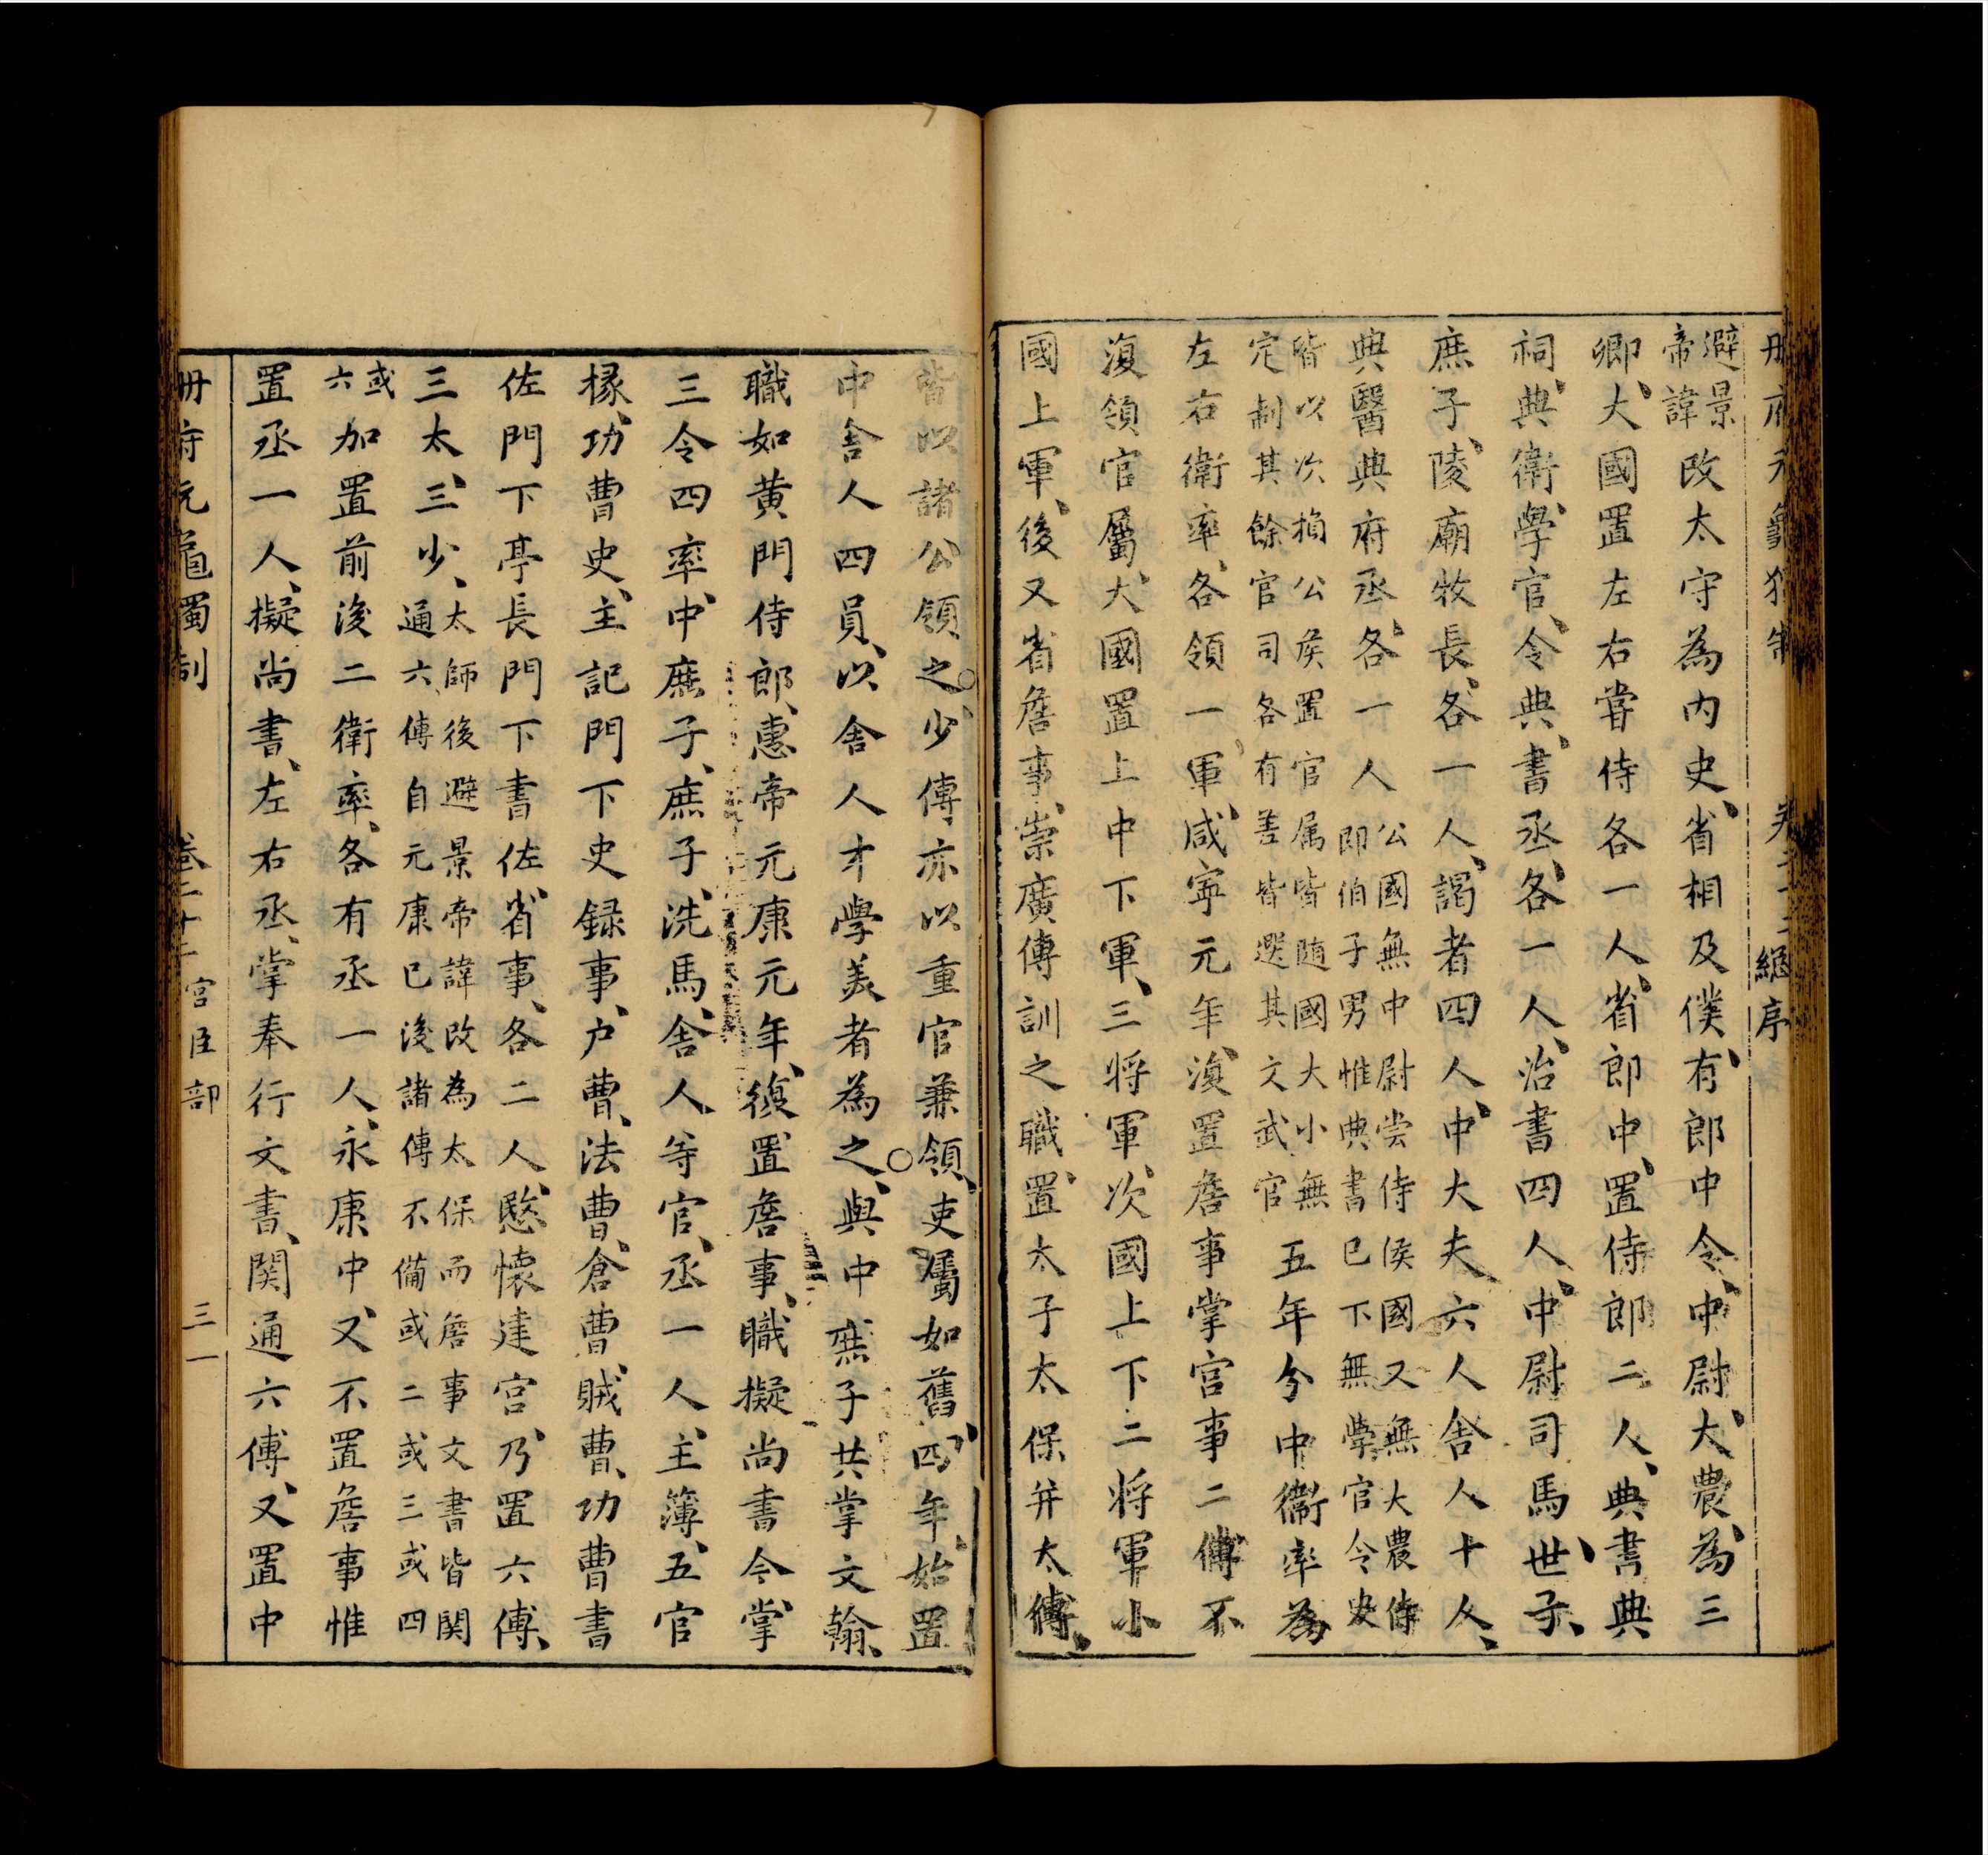 避景
帝諱改太守為内史省相及僕有郎中令中尉大農為三
卿大國置左右甞侍各一人省郎中置侍郎二人典書典
祠典衛學官令典書丞各一人治書四人中尉司馬世子
庶子陵廟牧長各一人謁者四人中大夫六人舍人十人
典醫典府丞各一人
公國無中尉尝侍侯國又無大農侍
即伯子男惟典書已下無學官令史
皆以次損公侯置官属皆随國大小無
定制其餘官司各有差皆選其文武官
五年分中衛率為
左右衛率各領一軍咸寧元年復置詹事掌宫事二傅不
復領官屬大國置上中下軍三将軍次國上下二将軍小
國上軍後又省詹事崇廣傅訓之職置太子太保并太傅
皆以諸公領之少傅亦以重官兼領吏屬如舊四年始置
中舎人四員以舎人才學美者為之與中庶子共掌文翰
職如黄門侍郎惠帝元康元年復置詹事職擬尚書令掌
三令四率中庶子庶子洗馬舎人等官丞一人主簿五官
掾功曹史主記門下史録事户曹法曹倉曹賊曹功曹書
佐門下亭長門下書佐省事各二人愍懷建宫乃置六傅
三太三少
太師後避景帝諱改為太保而詹事文書皆関
通六傅自元康已後諸傅不備或二或三或四
或
六加置前後二衛率各有丞一人永康中又不置詹事惟
置丞一人擬尚書左右丞掌奉行文書関通六傅又置中
冊府元龜獨制 宫臣部 三一